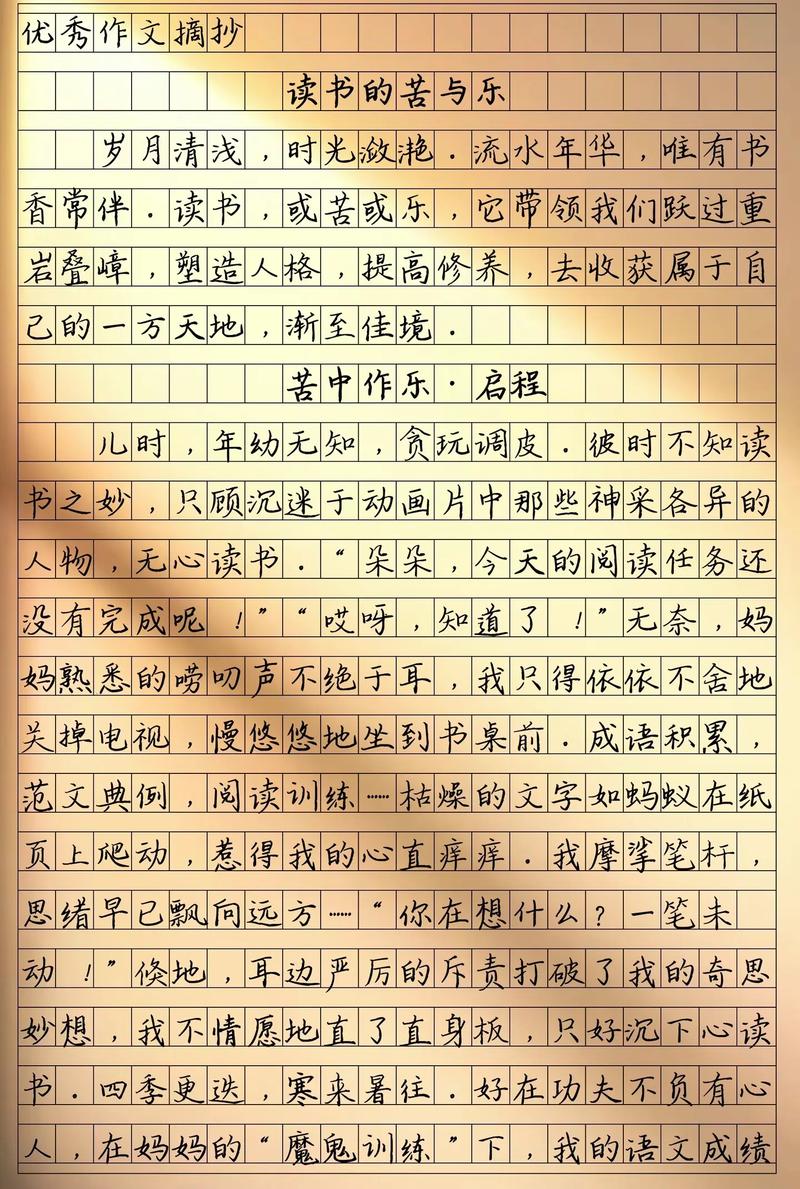 优秀作文摘抄
读书的苦与乐
岁月清浅，时光潋滟．流水年华，唯有书
香常伴．读书，或苦或乐，它带领我们跃过重
岩叠嶂，塑造人格，提高修养，去收获属于自
己的一方天地，渐至佳境．
苦中作乐·启程
儿时，年幼无知，贪玩调皮．彼时不知读
书之妙，只顾沉迷于动画片中那些神采各异的
人物，无心读书．“朵朵，今天的阅读任务还
没有完成呢！”“哎呀，知道了！”无奈，妈
妈熟悉的唠叨声不绝于耳，我只得依依不舍地
关掉电视，慢悠悠地坐到书桌前．成语积累，
范文典例，阅读训练……枯燥的文字如蚂蚁在纸
页上爬动，惹得我的心直痒痒．我摩挲笔杆，
思绪早已飘向远方……“你在想什么？一笔未
动！”倏地，耳边严厉的斥责打破了我的奇思
妙想，我不情愿地直了直身板，只好沉下心读
书．四季更迭，寒来暑往．好在功夫不负有心
人，在妈妈的“魔鬼训练”下，我的语文成绩